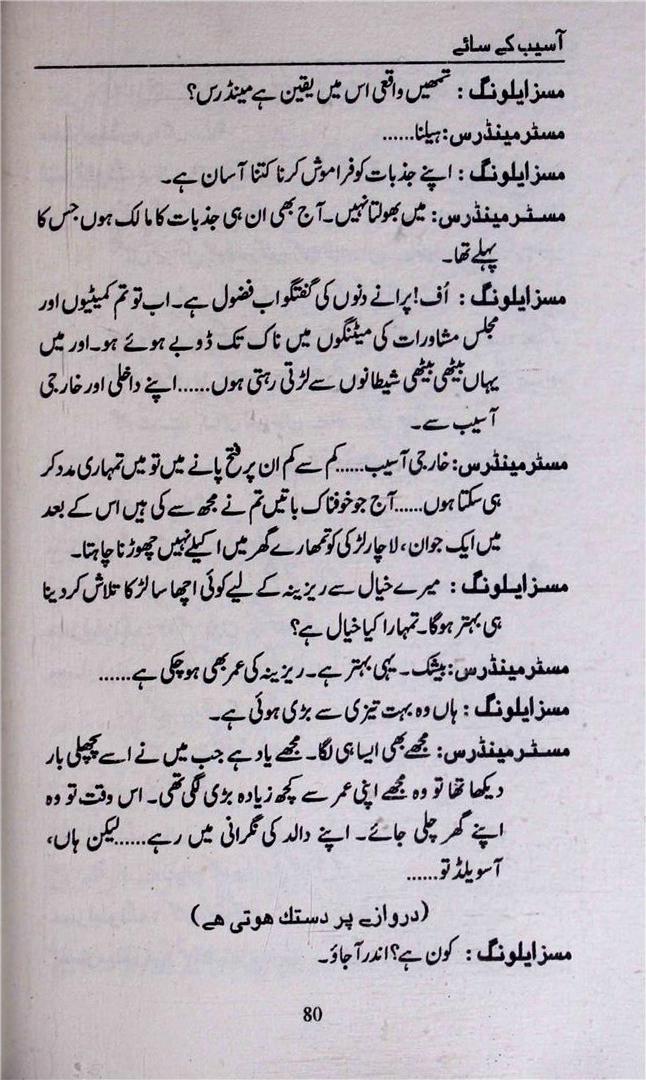 آسیب کے سائے
مسز ایلونگ : تمھیں واقعی اس میں یقین ہے مینڈرس؟
مسٹر مینڈرس: ہیلنا......
مسز ایلونگ : اپنے جذبات کو فراموش کرنا کتنا آسان ہے۔
مسٹر مینڈرس: میں بھولتا نہیں۔ آج بھی ان ہی جذبات کا مالک ہوں جس کا
پہلے تھا۔
مسز ایلونگ : اُف! پرانے دنوں کی گفتگو اب فضول ہے۔ اب تو تم کمیٹیوں اور
مجلس مشاورات کی میٹنگوں میں ناک تک ڈوبے ہوئے ہو۔ اور میں
یہاں بیٹھی بیٹھی شیطانوں سے لڑتی رہتی ہوں......اپنے داخلی اور خارجی
آسیب سے۔
مسٹر مینڈرس: خارجی آسیب......کم سے کم ان پر فتح پانے میں تو میں تمہاری مدد کر
ہی سکتا ہوں......آج جو خوفناک باتیں تم نے مجھ سے کی ہیں اس کے بعد
میں ایک جوان، لاچار لڑکی کو تمھارے گھر میں اکیلے نہیں چھوڑنا چاہتا۔
مسز ایلونگ : میرے خیال سے ریزینہ کے لیے کوئی اچھا سا لڑکا تلاش کر دینا
ہی بہتر ہوگا۔ تمہارا کیا خیال ہے؟
مسٹر مینڈرس: بیشک۔ یہی بہتر ہے۔ ریزینہ کی عمر بھی ہو چکی ہے......
مسز ایلونگ : ہاں وہ بہت تیزی سے بڑی ہوئی ہے۔
مسٹر مینڈرس: مجھے بھی ایسا ہی لگا۔ مجھے یاد ہے جب میں نے اسے پچھلی بار
دیکھا تھا تو وہ مجھے اپنی عمر سے کچھ زیادہ بڑی لگی تھی۔ اس وقت تو وہ
اپنے گھر چلی جائے۔ اپنے والد کی نگرانی میں رہے......لیکن ہاں،
آسویلڈ تو......
(دروازے پر دستك ہوتی ہے)
مسز ایلونگ : کون ہے؟ اندر آجاؤ۔
80